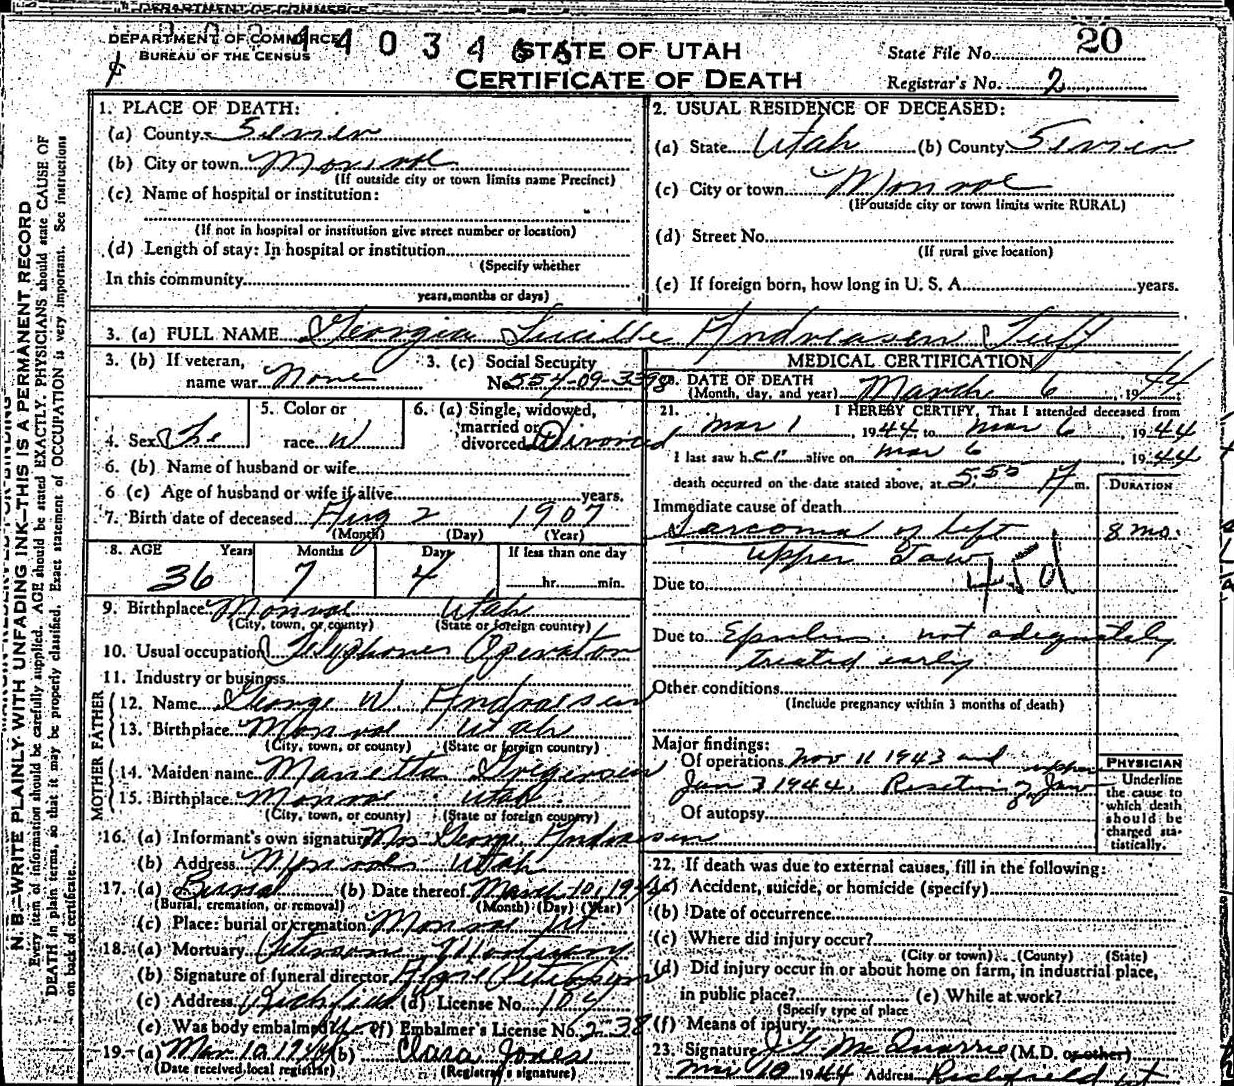 DEPARTMENT OF COMMERCE
BUREAU OF THE CENSUS
STATE OF UTAH
CERTIFICATE OF DEATH
State File No. 20
Registrar's No. 2
1. PLACE OF DEATH:
(a) County Sevier
(b) City or town Monroe
(If outside city or town limits name Precinct)
(c) Name of hospital or institution:
(If not in hospital or institution give street number or location)
(d) Length of stay: In hospital or institution
(Specify whether
In this community
years, months or days)
2. USUAL RESIDENCE OF DECEASED:
(a) State Utah (b) County Sevier
(c) City or town Monroe
(If outside city or town limits write RURAL)
(d) Street No.
(If rural give location)
(e) If foreign born, how long in U. S. A. years.
3. (a) FULL NAME Georgia Lucille Andreasen Tuft
3. (b) If veteran, name war None
3. (c) Social Security No.
4. Sex Fe
5. Color or race W
6. (a) Single, widowed, married or divorced Divorced
6. (b) Name of husband or wife
6 (c) Age of husband or wife if alive years.
7. Birth date of deceased Aug 2 1907
(Month) (Day) (Year)
8. AGE Years Months Days If less than one day
36 7 4 hr. min.
9. Birthplace Monroe Utah
(City, town, or county) (State or foreign country)
10. Usual occupation Telephone Operator
11. Industry or business
FATHER
12. Name George W Andreasen
13. Birthplace Monroe Utah
(City, town, or county) (State or foreign country)
MOTHER
14. Maiden name Marietta Gregersen
15. Birthplace Monroe Utah
(City, town, or county) (State or foreign country)
16. (a) Informant's own signature Mrs George Andreasen
(b) Address Monroe Utah
17. (a) Burial (b) Date thereof March 10, 1944
(Burial, cremation, or removal) (Month) (Day) (Year)
(c) Place: burial or cremation Monroe Ut.
18. (a) Mortuary Mortuary
(b) Signature of funeral director
(c) Address Richfield (d) License No. 104
(e) Was body embalmed? (f) Embalmer's License No. 238
19. (a) Mar 10 1944 (b) Clara Jones
(Date received local registrar) (Registrar's signature)
MEDICAL CERTIFICATION
20. DATE OF DEATH
(Month, day, and year) March 6 1944
21. I HEREBY CERTIFY, That I attended deceased from
Mar 1, 1944, to Mar 6, 1944
I last saw her alive on Mar 6, 1944
death occurred on the date stated above, at 5:55 A m.
DURATION
Immediate cause of death
Sarcoma of left 8 mo.
upper Jaw
45d
Due to
Due to Epulis. not adequately
treated early
Other conditions
(Include pregnancy within 3 months of death)
Major findings:
Of operations Nov 11 1943 and
Jan 3 1944. upper Jaw
Of autopsy
PHYSICIAN
Underline the cause to which death should be charged statistically.
22. If death was due to external causes, fill in the following:
(a) Accident, suicide, or homicide (specify)
(b) Date of occurrence
(c) Where did injury occur?
(City or town) (County) (State)
(d) Did injury occur in or about home on farm, in industrial place,
in public place? (e) While at work?
(Specify type of place
(f) Means of injury
23. Signature J G McQuarrie (M.D. or other)
Mar 10 1944 Address Richfield Ut
N. B.—WRITE PLAINLY WITH UNFADING INK—THIS IS A PERMANENT RECORD
Every item of information should be carefully supplied. AGE should be stated EXACTLY. PHYSICIANS should state CAUSE OF
DEATH in plain terms, so that it may be properly classified. Exact statement of OCCUPATION is very important. See instructions
on back of certificate.